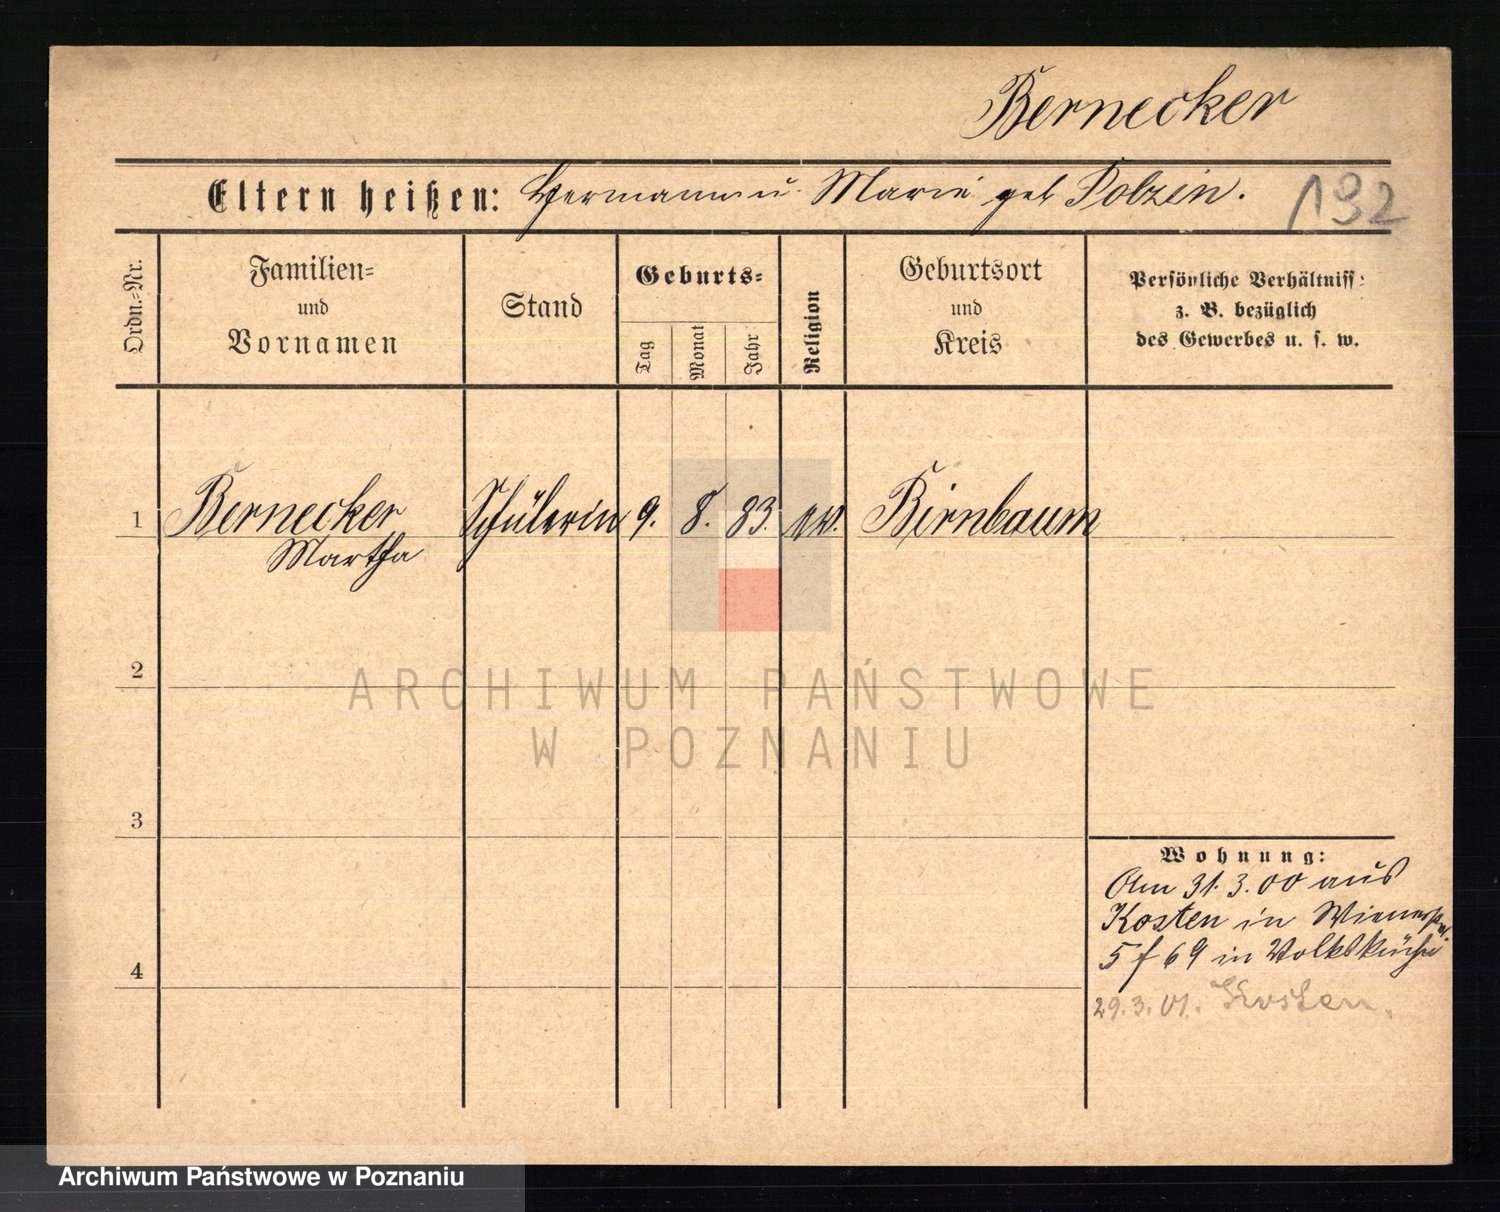 Bernecker
Eltern heißen: Hermann u. Marie geb Polzin.
192
Ordn.-Nr.
Familien-
und
Vornamen
Stand
Geburts-
Tag
Monat
Jahr
Religion
Geburtsort
und
Kreis
Persönliche Verhältniss
z. B. bezüglich
des Gewerbes u. s. w.
1 Bernecker Schülerin 9. 8. 83. ev. Birnbaum
Martha
ARCHIWUM PAŃSTWOWE
W POZNANIU
2
3
4
Wohnung:
Am 31.3.00 aus
Kosten in
5 f 69 in Volksküche
29.3.01. Kosten.
Archiwum Państwowe w Poznaniu